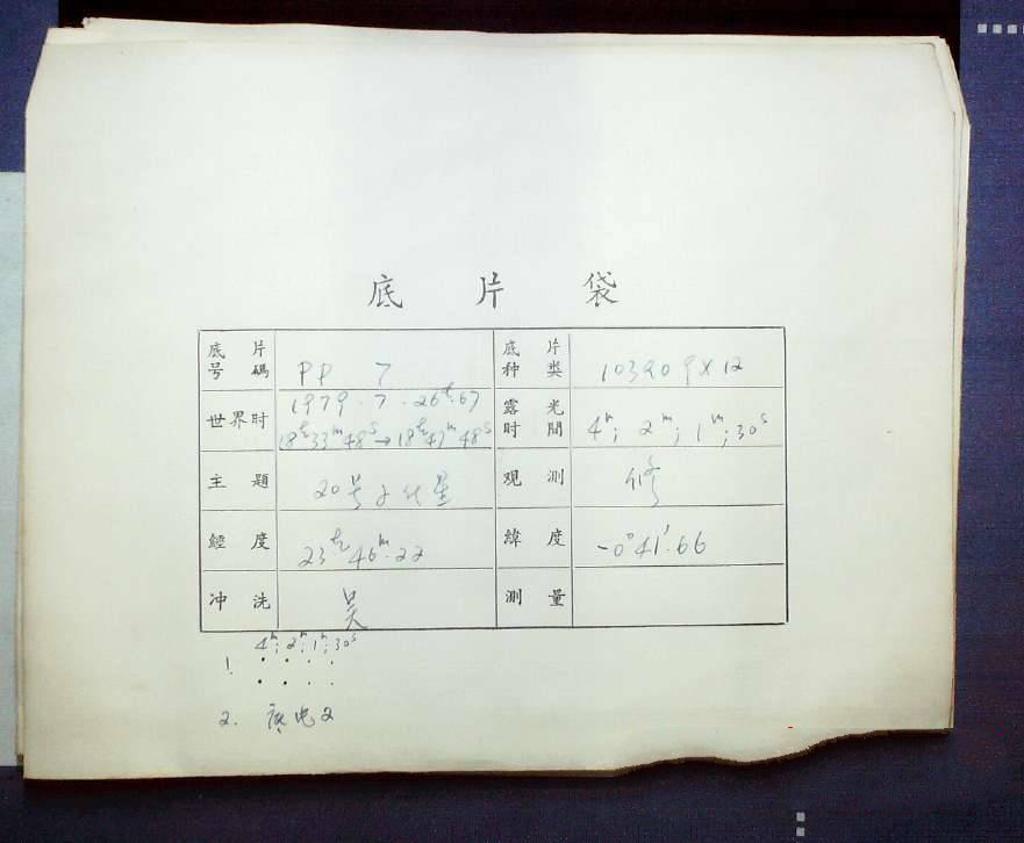 底片袋
底片号碼 PP 7 底片种类 103aO 9×12
世界时 1979.7.26ᵗ.67 18ᵗ33ᵐ48ˢ→18ᵗ47ᵐ48ˢ 露光时間 4ᵐ; 2ᵐ; 1ᵐ; 30ˢ
主題 20号 观測 修
經度 23ᵗ46ᵐ.22 緯度 -0°41'.66
冲洗 吴 測量
4ᵐ; 2ᵐ; 1ᵐ; 30ˢ
1.
2.